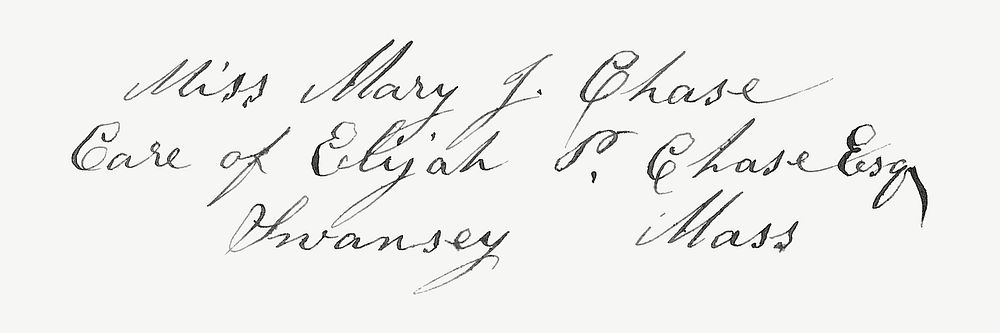 Miss Mary J. Chase
Care of Elijah P. Chase Esq
Swansey Mass